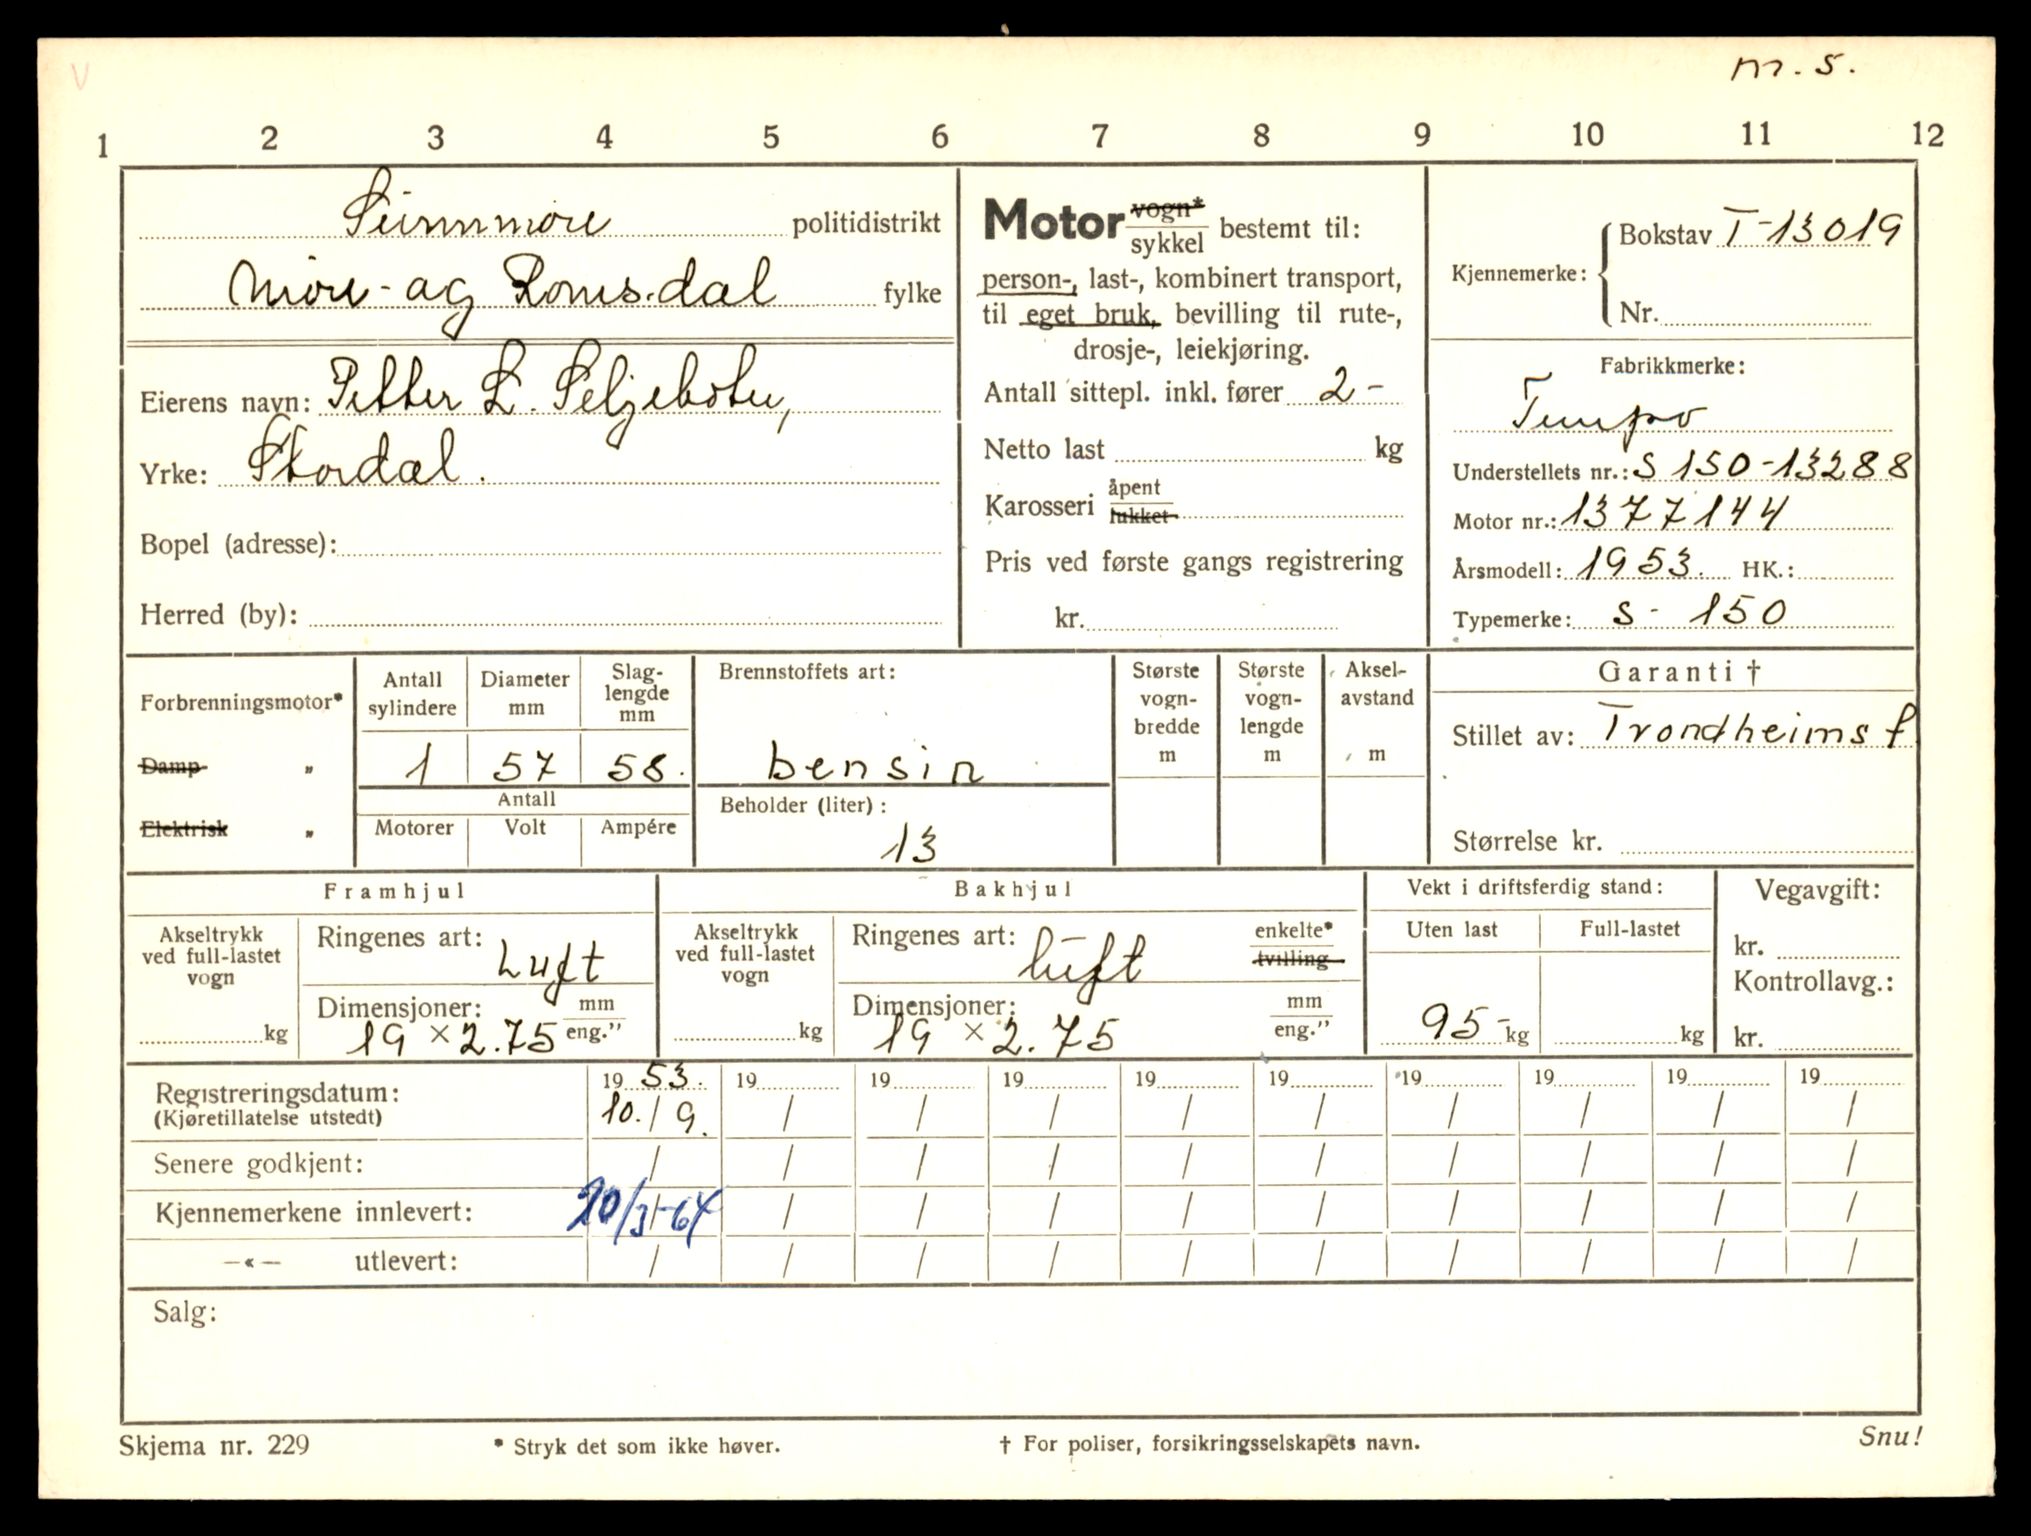 V
m. s.
1 2 3 4 5 6 7 8 9 10 11 12
Sunnmøre politidistrikt
Møre- og Romsdal fylke
Eierens navn: Petter L. Seljebotn,
Yrke: Stordal.
Bopel (adresse):
Herred (by):
Motor vogn* / sykkel bestemt til:
person-, last-, kombinert transport,
til eget bruk, bevilling til rute-,
drosje-, leiekjøring.
Antall sittepl. inkl. fører 2-
Netto last kg
Karosseri åpent / lukket
Pris ved første gangs registrering
kr.
Kjennemerke: Bokstav T-13019
Nr.
Fabrikkmerke:
Tempo
Understellets nr.: S 150-13288
Motor nr.: 1377144
Årsmodell: 1953. HK.:
Typemerke: S- 150
Forbrenningsmotor*
Damp "
Elektrisk "
Antall sylindere
Diameter mm
Slag-lengde mm
1 57 58.
Antall
Motorer Volt Ampére
Brennstoffets art:
bensin
Beholder (liter):
13
Største vogn-bredde m
Største vogn-lengde m
Aksel-avstand m
Garanti †
Stillet av: Trondheims f
Størrelse kr.
Framhjul
Akseltrykk
ved full-lastet
vogn
kg
Ringenes art: Luft
Dimensjoner: mm
19 × 2.75 eng."
Bakhjul
Akseltrykk
ved full-lastet
vogn
kg
Ringenes art: luft enkelte* / tvilling
Dimensjoner: mm
19 × 2.75 eng."
Vekt i driftsferdig stand:
Uten last Full-lastet
95- kg kg
Vegavgift:
kr.
Kontrollavg.:
kr.
Registreringsdatum: 1953. 19 19 19 19 19 19 19 19 19
(Kjøretillatelse utstedt) 10./9. / / / / / / / / /
Senere godkjent: / / / / / / / / / /
Kjennemerkene innlevert: 20/3-64 / / / / / / / / /
—«— utlevert: / / / / / / / / / /
Salg:
Skjema nr. 229 * Stryk det som ikke høver. † For poliser, forsikringsselskapets navn. Snu!